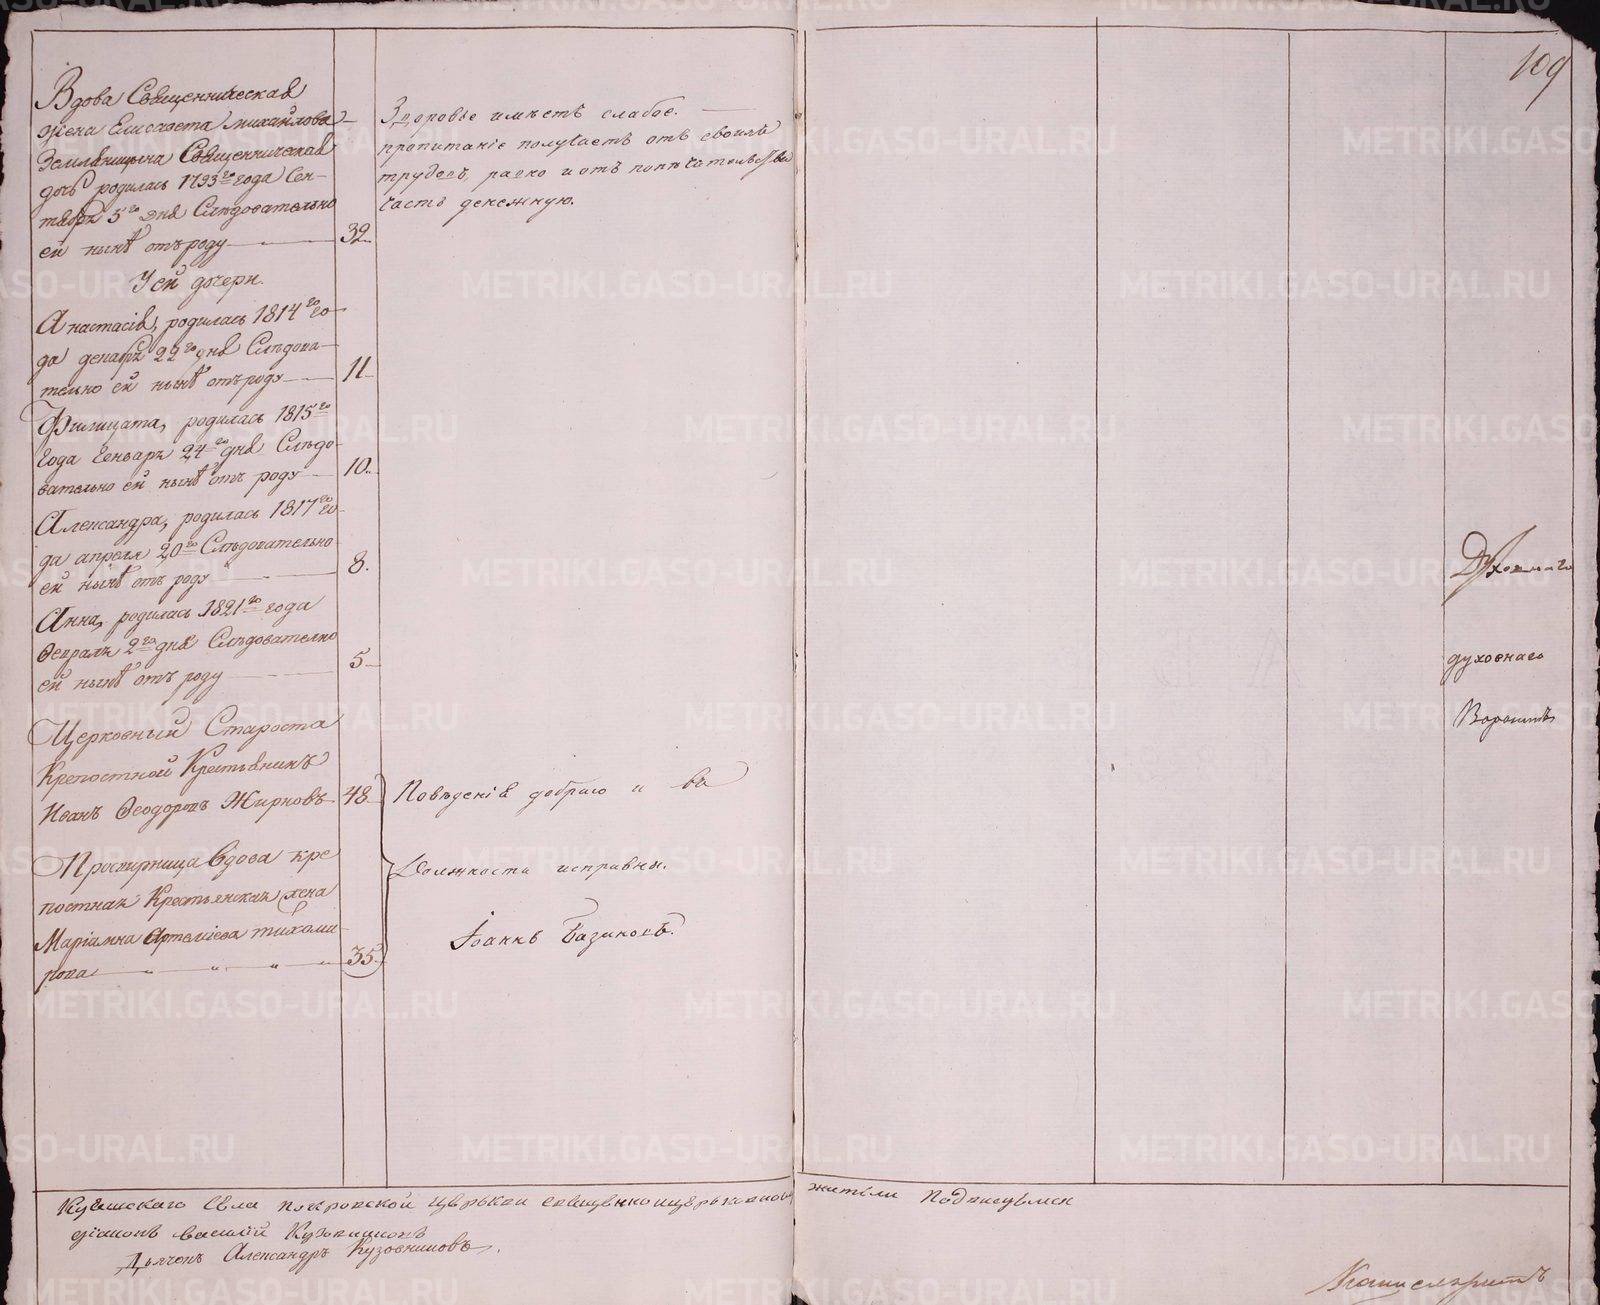 109
Вдова Священническая
жена Елисавета Михайлова
Землѣницына Священническая
дочь родилась 1793го года Сен-
тября 5го дня Слѣдовательно
ей нынѣ отъ роду 32.
У ей дочери.
Анастасія, родилась 1814го го-
да декабря 22го дня Слѣдова-
тельно ей нынѣ отъ роду 11
Филицата, родилась 1815го
года Генваря 24го дня Слѣдо-
вательно ей нынѣ отъ роду 10.
Александра, родилась 1817го го-
да апреля 20го Слѣдовательно
ей нынѣ отъ роду 8.
Анна, родилась 1821го года
Февраля 2го дня Слѣдователно
ей нынѣ отъ роду 5
Церковный Староста
Крепостной Крестьянинъ
Иванъ Ѳеодоровъ Жирновъ 48
Просвирница Вдова кре
постная Крестьянская жена
Маріамна Артемиева Тихоми-
рова 35.
Здоровье имѣетъ слабое.
пропитаніе получаетъ отъ своихъ
трудовъ, равно и отъ попѣчительства
часть денежную.
Повѣденія добраго и въ
должности исправны.
Іоаннъ Базиновъ.
Духовнаго
духовнаго
Куяшскаго Села Покровской Церькви священноцерьковно служители Подписуемся
діаконъ Василій Кузовниковъ
Дьячекъ Александръ Кузовниковъ.
Канцеляристъ
METRIKI.GASO-URAL.RU